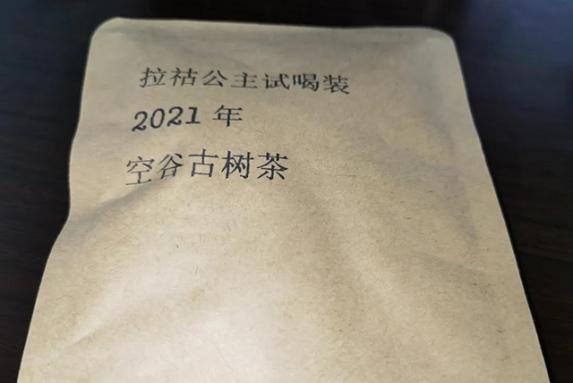 拉祜公主试喝装
2021 年
空谷古树茶